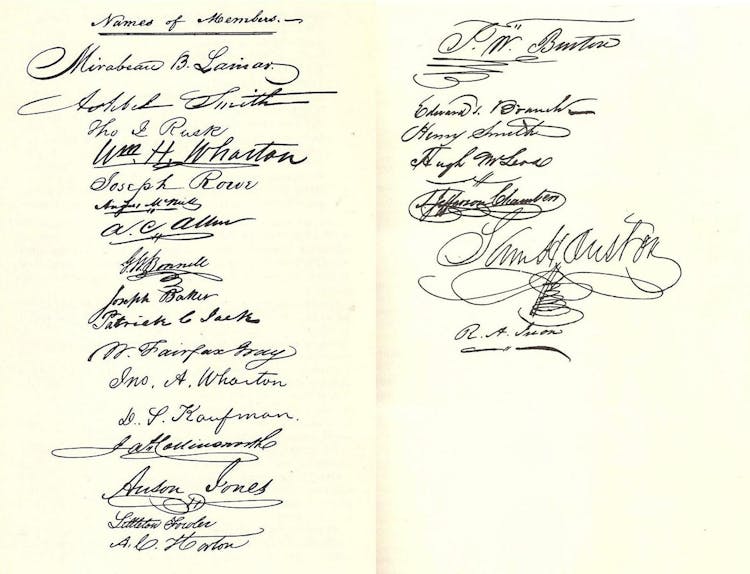 Names of Members.
Mirabeau B. Lamar.
Ashbel Smith
Tho J Rusk
Wm. H. Wharton
Joseph Rowe
Angus McNeill
A. C. Allen
G. W. Bonnell
Joseph Baker
Patrick C Jack
W. Fairfax Gray
Jno. A. Wharton
D. S. Kaufman.
J as Collinsworth
Anson Jones
Littleton Fowler
A. C. Horton
I. W. Burton
Edward T. Branch
Henry Smith
Hugh McLeod
T Jefferson Chambers
Sam Houston
R. A. Irion